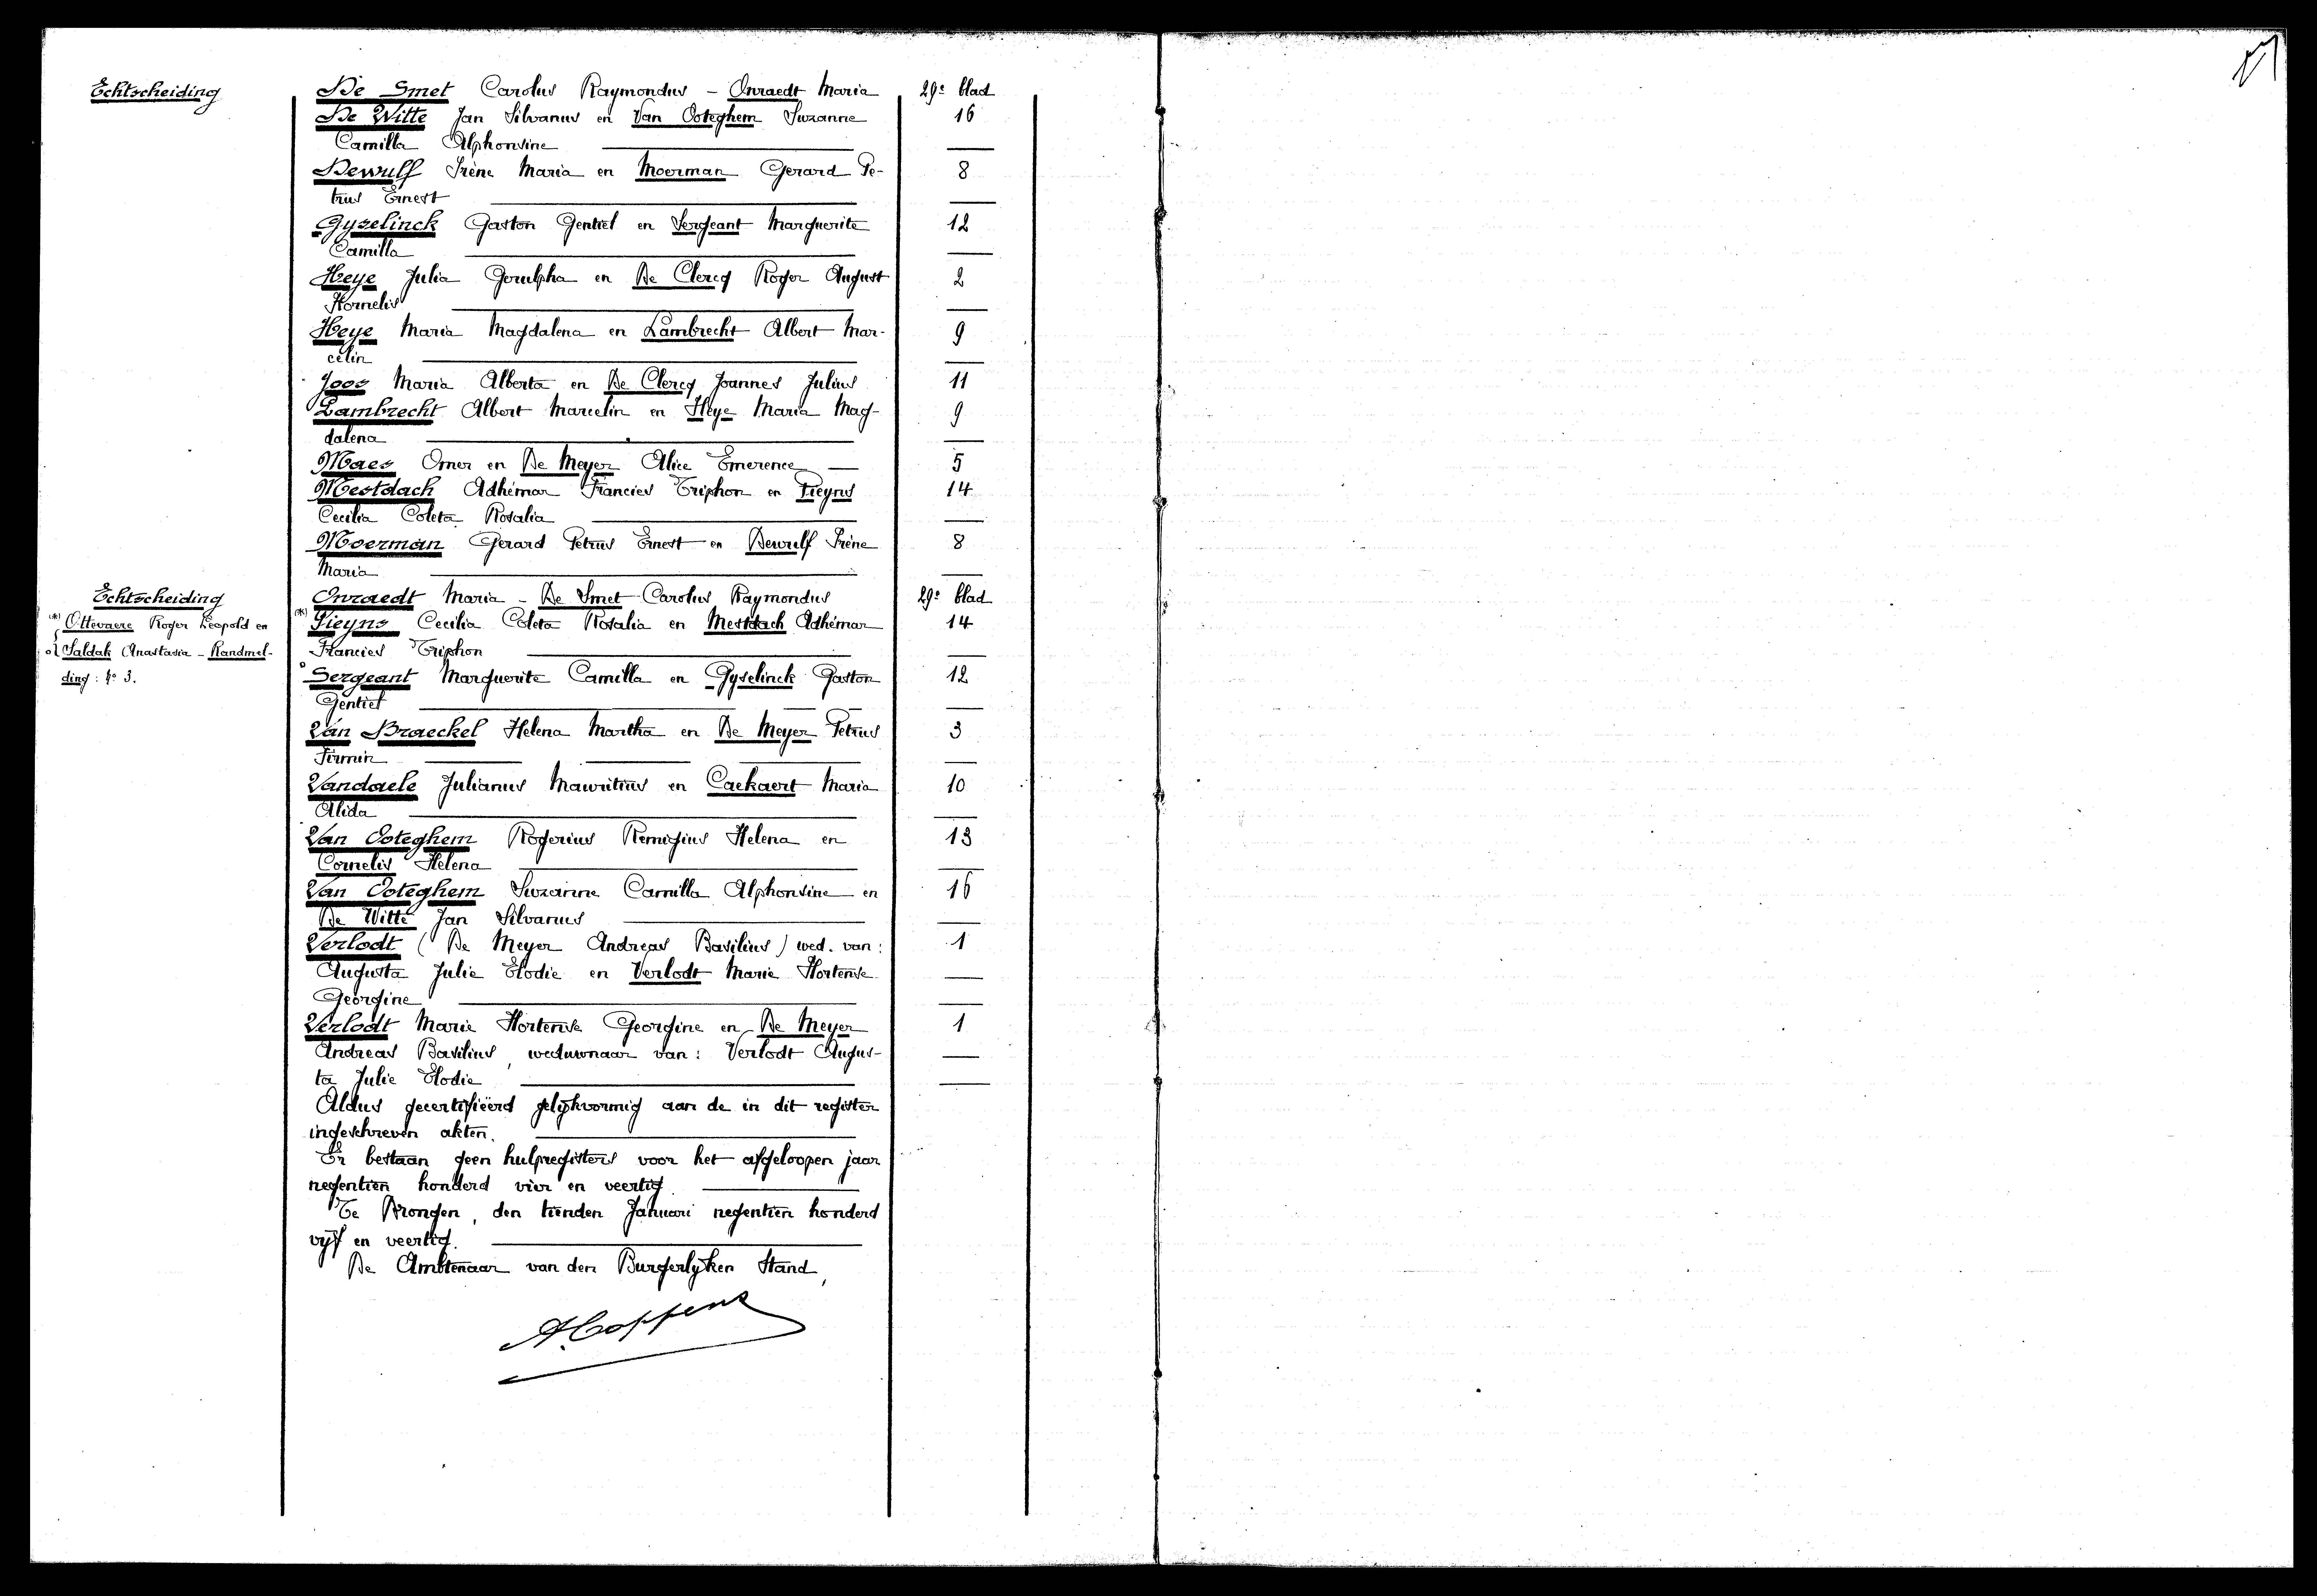 Echtscheiding De Smet Carolus Raymondus – Onraedt Maria 29e blad
De Witte Jan Silvanus en Van Ooteghem Suzanne 16
Camilla Alphonsine
Dewulf Irène Maria en Moerman Gerard Pe- 8
trus Ernest
Gyselinck Gaston Gentiel en Sergeant Marguerite 12
Camilla
Heye Julia Gerulpha en De Clercq Roger August 2
Kornelis
Heye Maria Magdalena en Lambrecht Albert Mar- 9
celin
Joos Maria Alberta en De Clercq Joannes Julius 11
Lambrecht Albert Marcelin en Heye Maria Mag- 9
dalena
Maes Omer en De Meyer Alice Emerence 5
Mestdach Adhémar Francies Triphon en Pieyns 14
Cecilia Coleta Rosalia
Moerman Gerard Petrus Ernest en Dewulf Irène 8
Maria
Echtscheiding Onraedt Maria – De Smet Carolus Raymondus 29e blad
(*) Ottevaere Roger Leopold en
of Saldak Anastasia – Randmel-
ding : No 3.
(*) Pieyns Cecilia Coleta Rosalia en Mestdach Adhémar 14
Francies Triphon
° Sergeant Marguerite Camilla en Gyselinck Gaston 12
Gentiel
Van Braeckel Helena Martha en De Meyer Petrus 3
Firmin
Vandaele Julianus Mauritius en Caekaert Maria 10
Alida
Van Ooteghem Rogerius Remigius Helena en 13
Cornelis Helena
Van Ooteghem Suzanne Camilla Alphonsine en 16
De Witte Jan Silvanus
Verlodt ( De Meyer Andreas Basilius ) wed. van : 1
Augusta Julie Elodie en Verlodt Marie Hortense
Georgine
Verlodt Marie Hortense Georgine en De Meyer 1
Andreas Basilius, weduwnaar van : Verlodt Augus-
ta Julie Elodie
Aldus gecertifiëerd gelijkvormig aan de in dit register
ingeschreven akten.
Er bestaan geen hulpregisters voor het afgeloopen jaar
negentien honderd vier en veertig.
Te Drongen, den tienden Januari negentien honderd
vijf en veertig.
De Ambtenaar van den Burgerlyken Stand,
A. Coppens